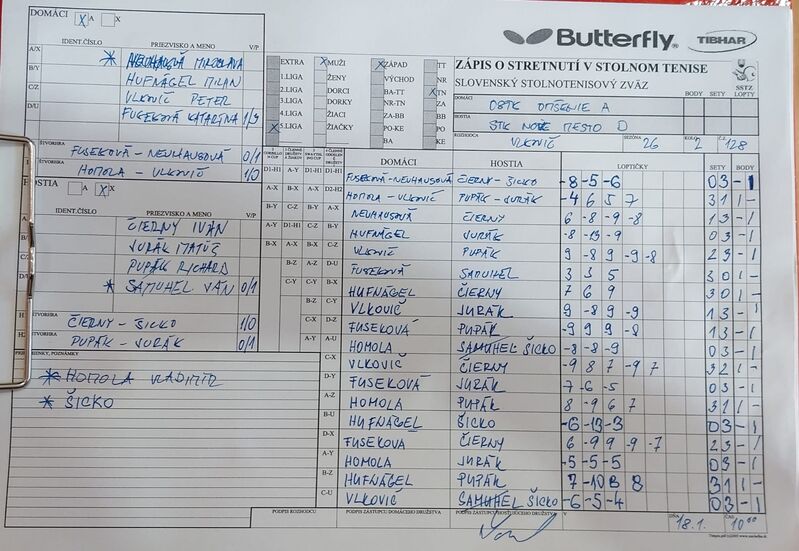 DOMÁCI X A X
IDENT.ČÍSLO PRIEZVISKO A MENO V/P
A/X * NEUHAUSOVÁ MIROSLAVA
B/Y HUFNÁGEL MILAN
C/Z VLKOVIČ PETER
D/U FUSEKOVÁ KATARÍNA 1/3
ŠTVORHRA
FUSEKOVÁ - NEUHAUSOVÁ 0/1
HOMOLA - VLKOVIČ 1/0
HOSTIA A X X
IDENT.ČÍSLO PRIEZVISKO A MENO V/P
ČIERNY IVAN
JURÁK MATÚŠ
PUPÁK RICHARD
* SAMUHEL 0/1
ŠTVORHRA
ČIERNY - ŠICKO 1/0
ŠTVORHRA
PUPÁK - JURÁK 0/1
POZNÁMKY
* HOMOLA VLADIMÍR
* ŠICKO
Butterfly TIBHAR
EXTRA X MUŽI X ZÁPAD TT
1.LIGA ŽENY VÝCHOD NR
2.LIGA DORCI BA-TT X TN
3.LIGA DORKY NR-TN ZA
4.LIGA ŽIACI ZA-BB BB
X 5.LIGA ŽIAČKY PO-KE PO
BA KE
ZÁPIS O STRETNUTÍ V STOLNOM TENISE
SLOVENSKÝ STOLNOTENISOVÝ ZVÄZ
BODY SETY SSTZ LOPTY
DOMÁCI OSTK OMŠENIE A
HOSTIA STK NOVÉ MESTO D
ROZHODCA VLKOVIČ SEZÓNA 26 KOLO 2 Č. 128
DOMÁCI HOSTIA LOPTIČKY SETY BODY
D1-H1 A-Y D1-H1 D1-H1 FUSEKOVÁ-NEUHAUSOVÁ ČIERNY-ŠICKO -8 -5 -6 0 3 - 1
A-X B-X A-X D2-H2 HOMOLA - VLKOVIČ PUPÁK - JURÁK -4 6 5 7 3 1 1 -
B-Y C-Z B-Y A-X NEUHAUSOVÁ ČIERNY 6 -8 -9 -8 1 3 - 1
A-Y D1-H1 C-Z B-Y HUFNÁGEL JURÁK -8 -13 -9 0 3 - 1
B-X A-X B-X C-Z VLKOVIČ PUPÁK 9 -8 9 -9 -8 2 3 - 1
B-Z A-Z D-U FUSEKOVÁ SAMUHEL 3 3 5 3 0 1 -
C-Y C-Y B-X HUFNÁGEL ČIERNY 7 6 9 3 0 1 -
B-Z C-Y VLKOVIČ JURÁK 9 -8 9 -9 1 3 - 1
C-X D-Z FUSEKOVÁ PUPÁK -9 9 9 -8 1 3 - 1
A-Y A-U HOMOLA SAMUHEL ŠICKO -8 -8 -9 0 3 - 1
C-X VLKOVIČ ČIERNY -9 8 7 -9 7 3 2 1 -
D-Y FUSEKOVÁ JURÁK -7 -6 -5 0 3 - 1
A-Z HOMOLA PUPÁK 8 -9 6 7 3 1 1 -
B-U HUFNÁGEL ŠICKO -6 -13 -3 0 3 - 1
D-X FUSEKOVÁ ČIERNY 6 -9 9 -9 -7 2 3 - 1
A-Y HOMOLA JURÁK -5 -5 -5 0 3 - 1
B-Z HUFNÁGEL PUPÁK 7 -10 8 8 3 1 1 -
C-U VLKOVIČ SAMUHEL ŠICKO -6 -5 -4 0 3 - 1
PODPIS ROZHODCU PODPIS ZÁSTUPCU DOMÁCEHO DRUŽSTVA PODPIS ZÁSTUPCU HOSŤUJÚCEHO DRUŽSTVA V DŇA 18.1. ČAS 10 00